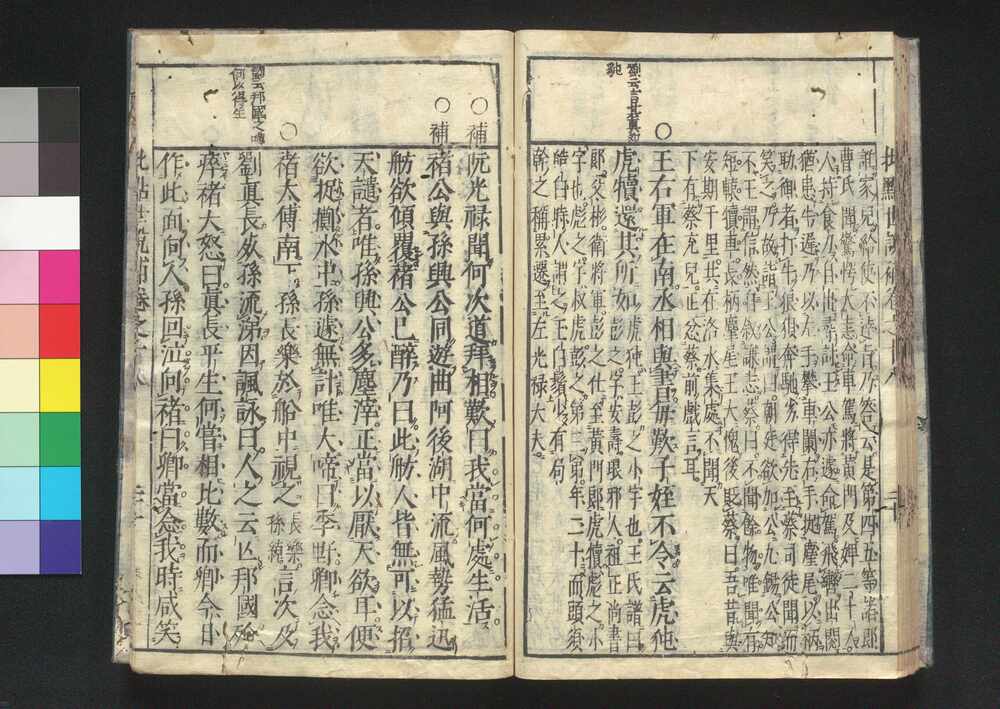 誰家兒給使不達旨乃答云是第四五等諸郎
曹氏聞驚愕大恚命車駕將黃門及婢二十人
人持食刀自出尋討王公亦遽命駕飛轡出門
猶患牛遲乃以左手攀車蘭右手捉麈尾以柄
助御者打牛狼狽奔馳劣得先至蔡司徒聞而
笑之乃故詣王公謂曰朝廷欲加公九錫公知
不王謂信然自敘謙志蔡曰不聞餘物唯聞有
短轅犢車長柄麈尾王大愧後貶蔡曰吾昔與
安期千里共在洛水集處不聞天
下有蔡充兒正忿蔡前戲言耳
劉云言其真如
㹠
○王右軍在南丞相與書每歎子姪不令云虎㹠
虎犢還其所如
虎㹠王彭之小字也王氏譜曰
彭之字安壽琅邪人祖正尚書
郎父彬衛將軍彭之仕至黃門郎虎犢彪之小
字也彪之字叔虎彭之第三弟年二十而頭須
皓白時人謂之王白鬚少有局
幹之稱累遷至左光祿大夫
○補阮光祿聞何次道拜相歎曰我當何處生活
○補褚公與孫興公同遊曲阿後湖中流風勢猛迅
舫欲傾覆褚公已醉乃曰此舫人皆無可以招
天譴者唯孫興公多塵滓正當以厭天欲耳便
欲捉擲水中孫遽無計唯大啼曰季野卿念我
○褚太傅南下孫長樂於船中視之
長樂
孫綽
言次及
劉云邦國之𠷣
何以得生
劉真長死孫流涕因諷詠曰人之云亡邦國殄
瘁褚大怒曰真長平生何嘗相比數而卿今日
作此面向人孫回泣向褚曰卿當念我時咸笑